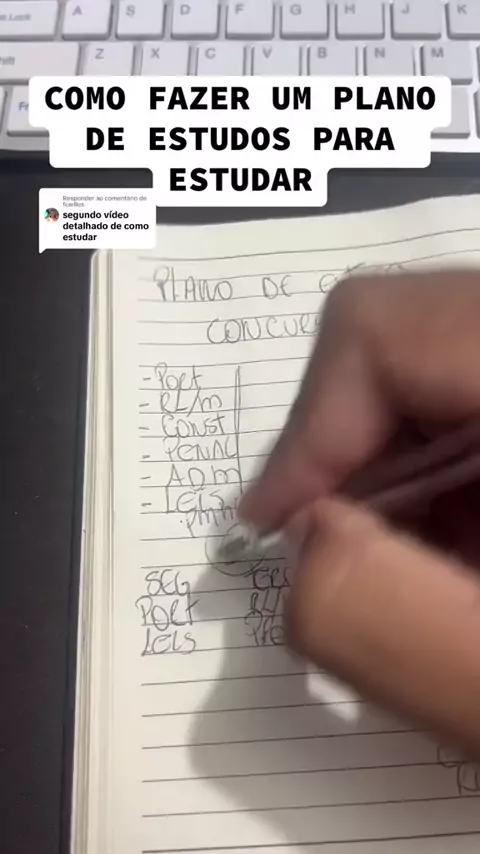 A S D F G H J K
Z X C V B N M
COMO FAZER UM PLANO
DE ESTUDOS PARA
ESTUDAR
Responder ao comentário de
segundo vídeo
detalhado de como
estudar
PLANO DE
CONCUR
- PORT
- RL/M
- CONST
- PENAL
- ADM
- LEIS
SEG
PORT
LEIS